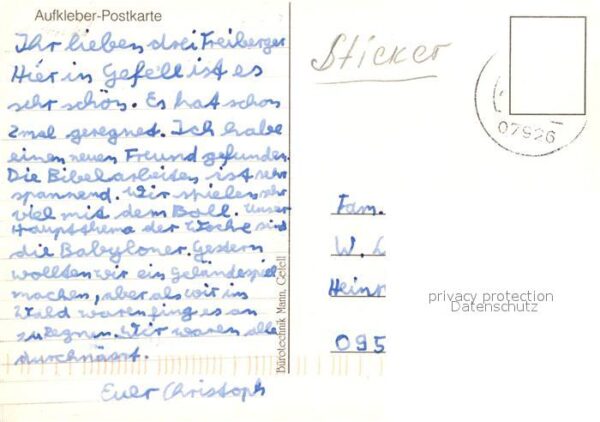 Aufkleber-Postkarte
Ihr lieben drei Freiberger
Hier in Gefell ist es
sehr schön. Es hat schon
2mal geregnet. Ich habe
einen neuen Freund gefunden.
Die Bibelarbeiten ist sehr
spannend. Wir spielen sehr
viel mit dem Ball. Unser
Hauptthema der Woche sind
die Babyloner. Gestern
wollten wir ein Geländespiel
machen, aber als wir im
Wald waren fing es an
zu regnen. Wir waren alle
durchnässt.
Euer Christoph
Bürotechnik Mann, Gefell
Sticker
07926
Fam.
W. L
Heinr
095
privacy protection
Datenschutz